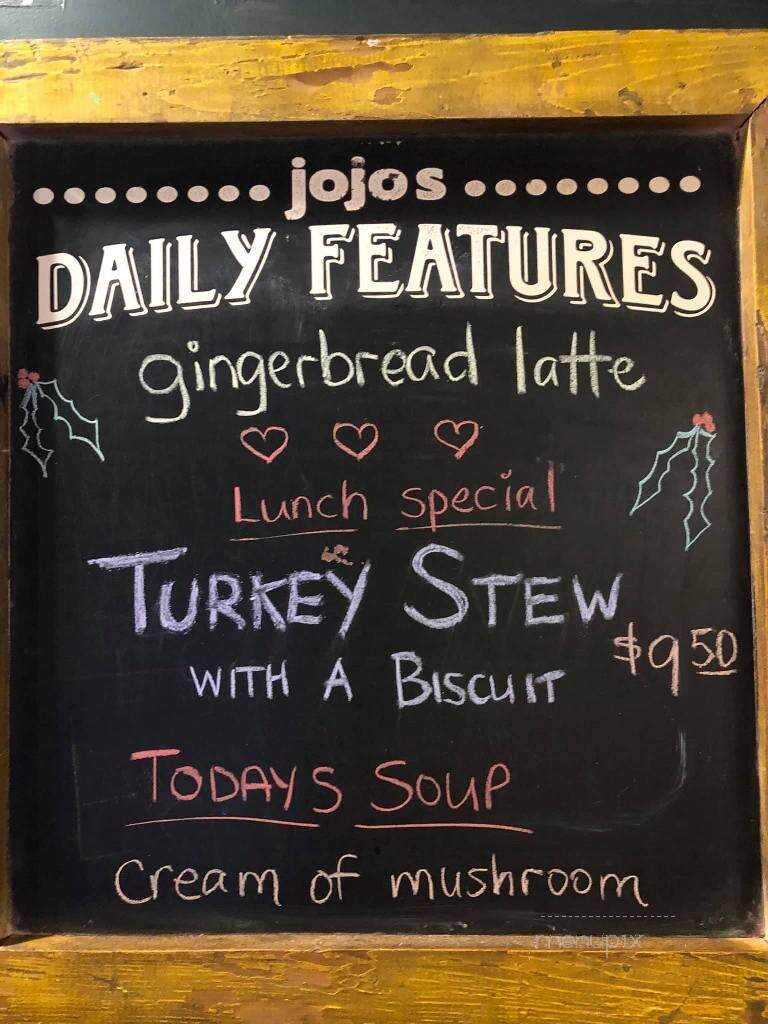 jojos
DAILY FEATURES
gingerbread latte
Lunch special
TURKEY STEW
$9.50
WITH A BISCUIT
TODAYS SOUP
Cream of mushroom
menupix